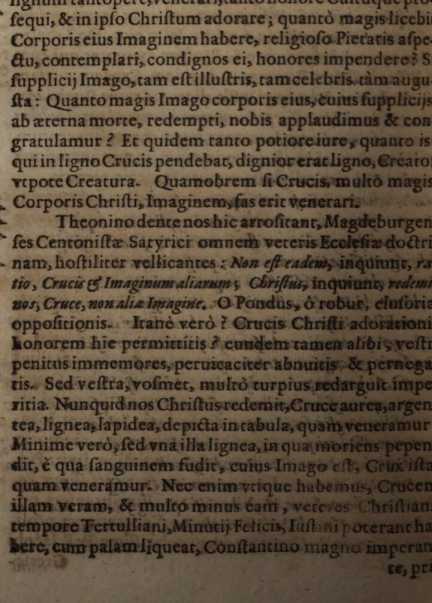 lignum tantopere, venerari, tanto honore
sequi, & in ipso Christum adorare; quantò magis licebit
Corporis eius Imaginem habere, religioso Pietatis aspe
ctu, contemplari, condignos ei, honores impendere? S
supplicij Imago, tam est illustris, tam celebris, tàm augu
sta: Quanto magis Imago corporis eius, cuius supplicijs
ab æterna morte, redempti, nobis applaudimus & con
gratulamur? Et quidem tanto potiore iure, quanto is
qui in ligno Crucis pendebat, dignior erat ligno, Creator
vtpote Creatura. Quamobrem si Crucis, multò magis
Corporis Christi, Imaginem, fas erit venerari.
Theonino dente nos hic arrositant, Magdeburgen
ses Centonistæ Satyrici omnem veteris Ecclesiæ doctri
nam, hostiliter vellicantes: Non est eadem, inquiunt, ra
tio, Crucis & Imaginum aliarum; Christus, inquiunt, redemi
nos, Cruce, non alia Imagine. O Pondus, ò robur, elusoriæ
oppositionis. Itanè verò? Crucis Christi adorationi
honorem hic permittitis? eundem tamen alibi, vestri
penitus immemores, peruicaciter abnuitis & pernega
tis. Sed vestra, vosmet, multò turpius redarguit impe
ritia. Nunquid nos Christus redemit, Cruce aurea, argen
tea, lignea, lapidea, depicta in tabula, quam veneramur
Minimè verò, sed vna illa lignea, in qua moriens pepen
dit, è qua sanguinem fudit, cuius Imago est, Crux ista
quam veneramur. Nec enim vtique habemus, Crucem
illam veram, & multò minus eam, veteres Christiani
tempore Tertulliani, Minutij Felicis, Iustini poterant ha
bere, cum palam liqueat, Constantino magno imperan
te, pri